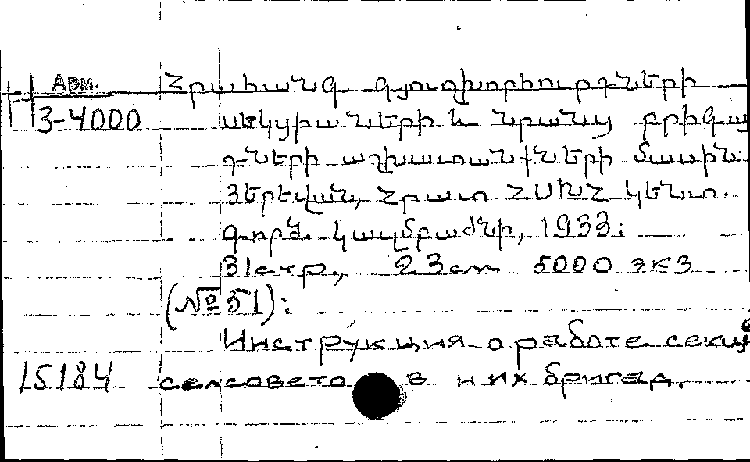 Арм.
3-4000
Հրահանգ գյուղխորհուրդների
սեկցիաների և նրանց բրիգա
դների աշխատանքների մասին:
Յերեվան, Հրատ ՀՍԽՀ կենտ.
գործ. կամ
1933:
31стр., 23см 5000 экз
(№ 51):
Инструкция о работе секц
15184 сельсовето в и их бригад.